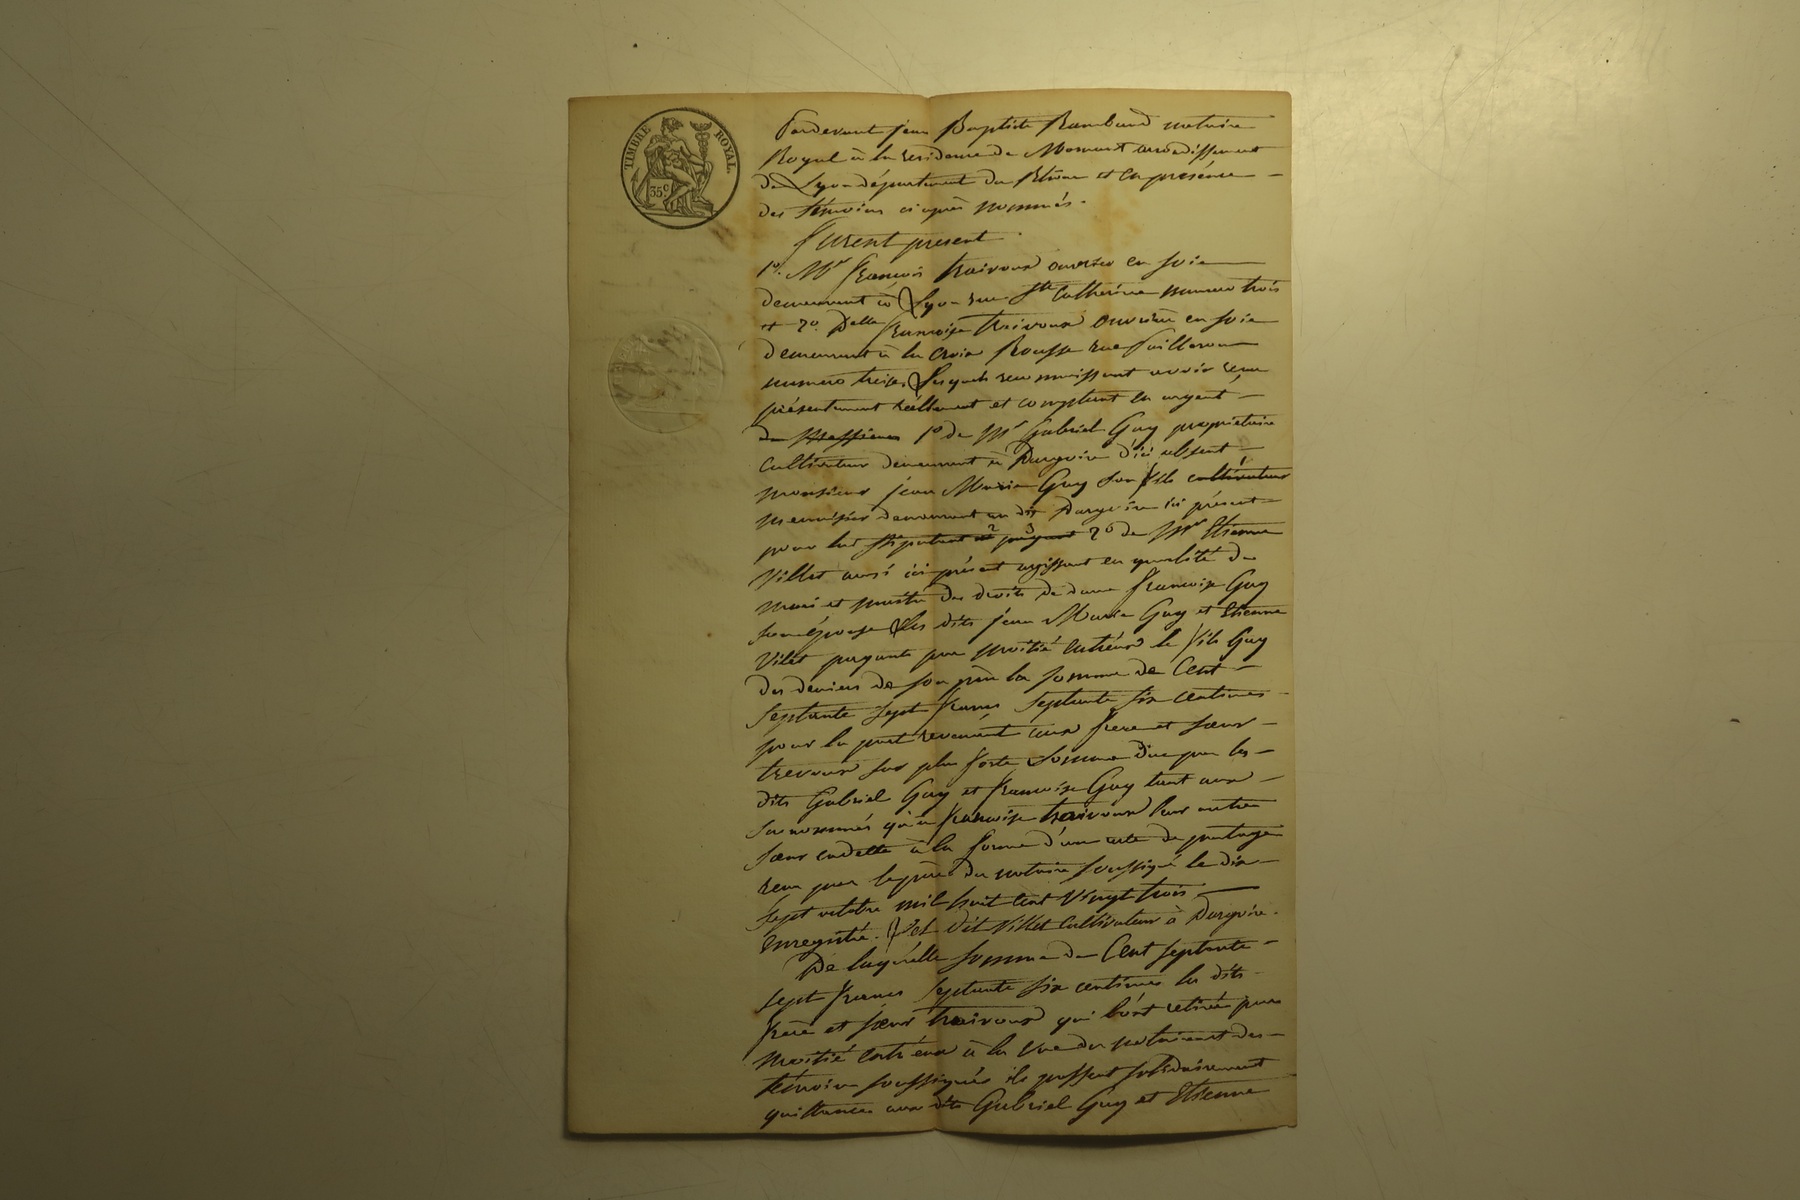 TIMBRE ROYAL.
35c
Pardevant jean Baptiste Rambaud notaire
Royal à la residence de Mornant arrondissement
de Lyon département du Rhône et en présence
des témoins ci après nommés.
furent present
1º. Mr françois traivoux ouvrier en soie
demeurant à Lyon rue Ste Catherine numero trois
et 2º. Delle françoise traivoux ouvrière en soie
demeurant à la Croix Rousse rue
numero treize, Lesquels reconnaissent avoir reçu
présentement réellement et comptant en argent
de Messieurs 1º de Mr Gabriel Guy propriétaire
Cultivateur demeurant à Dargoire d'ici absent
monsieur jean Marie Guy son fils cultivateur
menuisier demeurant au dit Dargoire ici présent
pour lui stipulant et payant 2º de Mr Etienne
Villet aussi ici présent agissant en qualité de
mari et maitre des droits de dame françoise Guy
son épouse Les dits jean Marie Guy et Etienne
Vilet payants par moitié entr'eux le fils Guy
des deniers de son père la somme de Cent
Septante Sept francs Septante six centimes
pour la part revenant aux frere et sœur
trevoux sur plus forte Somme due par les
dits Gabriel Guy et françoise Guy tant aux
sus nommés qu'à françoise traivoux leur autre
sœur cadette à la forme d'un acte de partage
recu par le notaire soussigné le dix
sept octobre mil huit cent vingt trois
Enregistré. Le dit Villet Cultivateur à Dargoire.
De laquelle somme de Cent septante
sept francs Septante six centimes les dits
frère et sœur traivoux qui l'ont retirée par
moitié entr'eux à la vue du notaire et des
témoins soussignés ils passent solidairement
quittance aux dits Gabriel Guy et Etienne